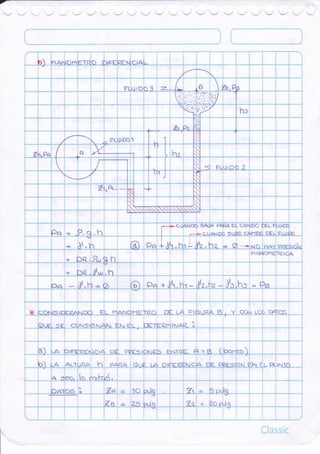 b) MANOMETRO DIFERENCIAL
FLUIDO 3
B
ZB, PB
h3
Z2, P2
FLUIDO 1
h
h2
ZA, PA
A
h1
FLUIDO 2
Z1, P1
CUANDO BAJA PARA EL CAMBIO DEL FLUIDO
CUANDO SUBE CAMBIO DEL FLUIDO
PA = ρ.g.h
= γ.h
= DR.ρw.g.h
= DR.γw.h
PA - γ.h = 0
a) PA + γ1.h1 - γ2.h2 = 0 → NO HAY PRESIÓN MANOMETRICA
b) PA + γ1.h1 - γ2.h2 - γ3.h3 = PB
* CONSIDERANDO EL MANOMETRO DE LA FIGURA B, Y CON LOS DATOS
QUE SE CONSIGNAN EN EL, DETERMINAR :
a) LA DIFERENCIA DE PRESIONES ENTRE A Y B (bares)
b) LA ALTURA h PARA QUE LA DIFERENCIA DE PRESION EN EL PUNTO
A sea la mitad.
DATOS :
ZA = 10 pulg.
Z1 = 5 pulg
ZB = 25 pulg
Z2 = 20 pulg
Classic